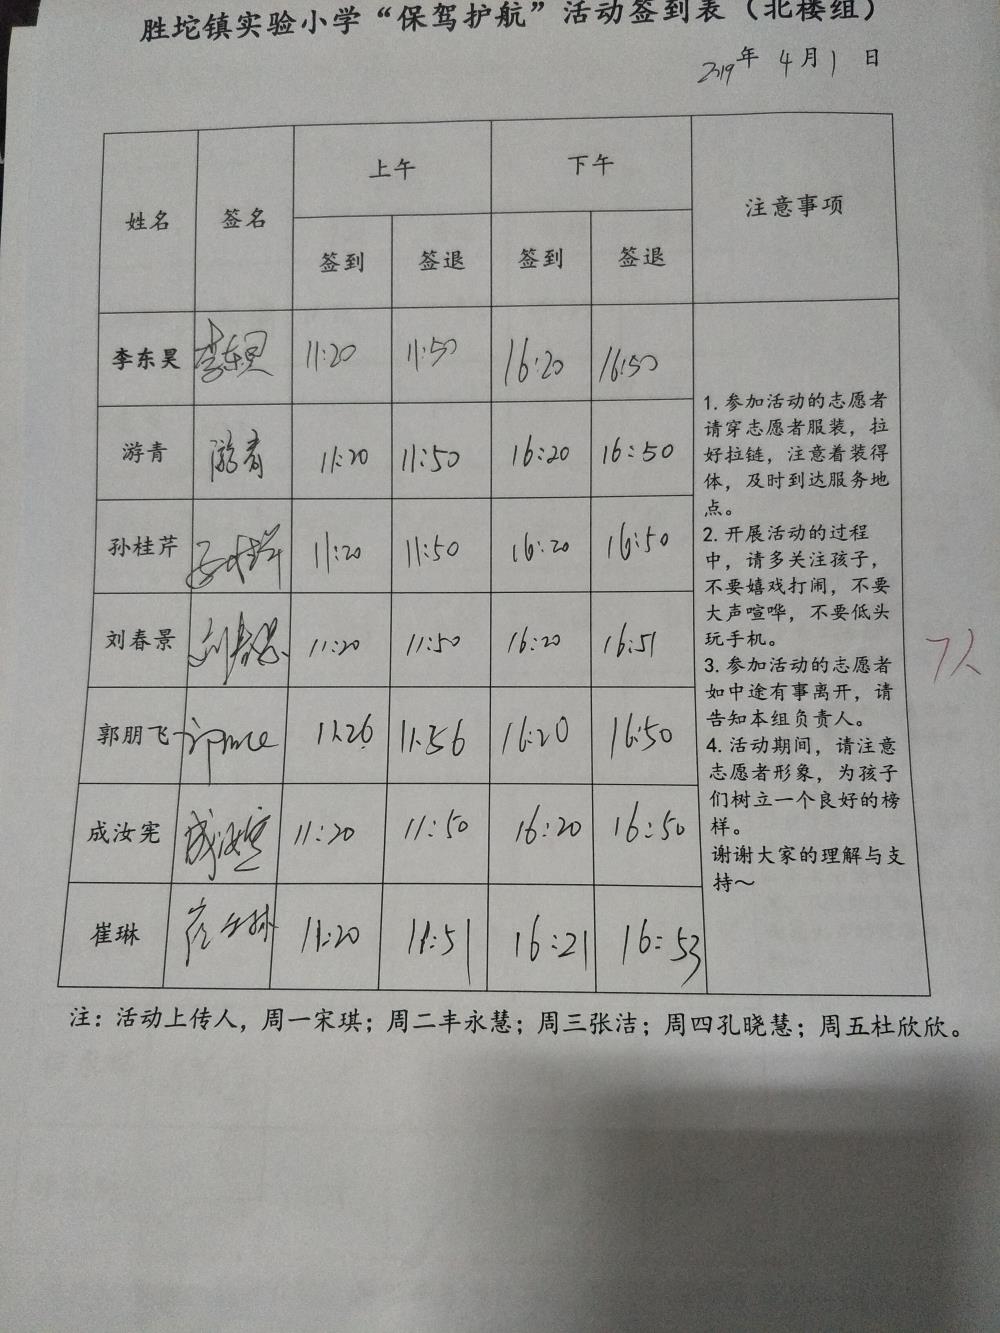 胜坨镇实验小学“保驾护航”活动签到表（北楼组）
2019年 4月1日
姓名 签名 上午 下午 注意事项
签到 签退 签到 签退
李东昊 李东昊 11:20 11:50 16:20 16:50
游青 游青 11:20 11:50 16:20 16:50
孙桂芹 孙桂芹 11:20 11:50 16:20 16:50
刘春景 刘春景 11:20 11:50 16:20 16:51
郭朋飞 11:26 11:56 16:20 16:50
成汝宪 成汝宪 11:20 11:50 16:20 16:50
崔琳 崔琳 11:20 11:51 16:21 16:53
1. 参加活动的志愿者
请穿志愿者服装，拉
好拉链，注意着装得
体，及时到达服务地
点。
2. 开展活动的过程
中，请多关注孩子，
不要嬉戏打闹，不要
大声喧哗，不要低头
玩手机。
3. 参加活动的志愿者
如中途有事离开，请
告知本组负责人。
4. 活动期间，请注意
志愿者形象，为孩子
们树立一个良好的榜
样。
谢谢大家的理解与支
持～
7人
注：活动上传人，周一宋琪；周二丰永慧；周三张洁；周四孔晓慧；周五杜欣欣。